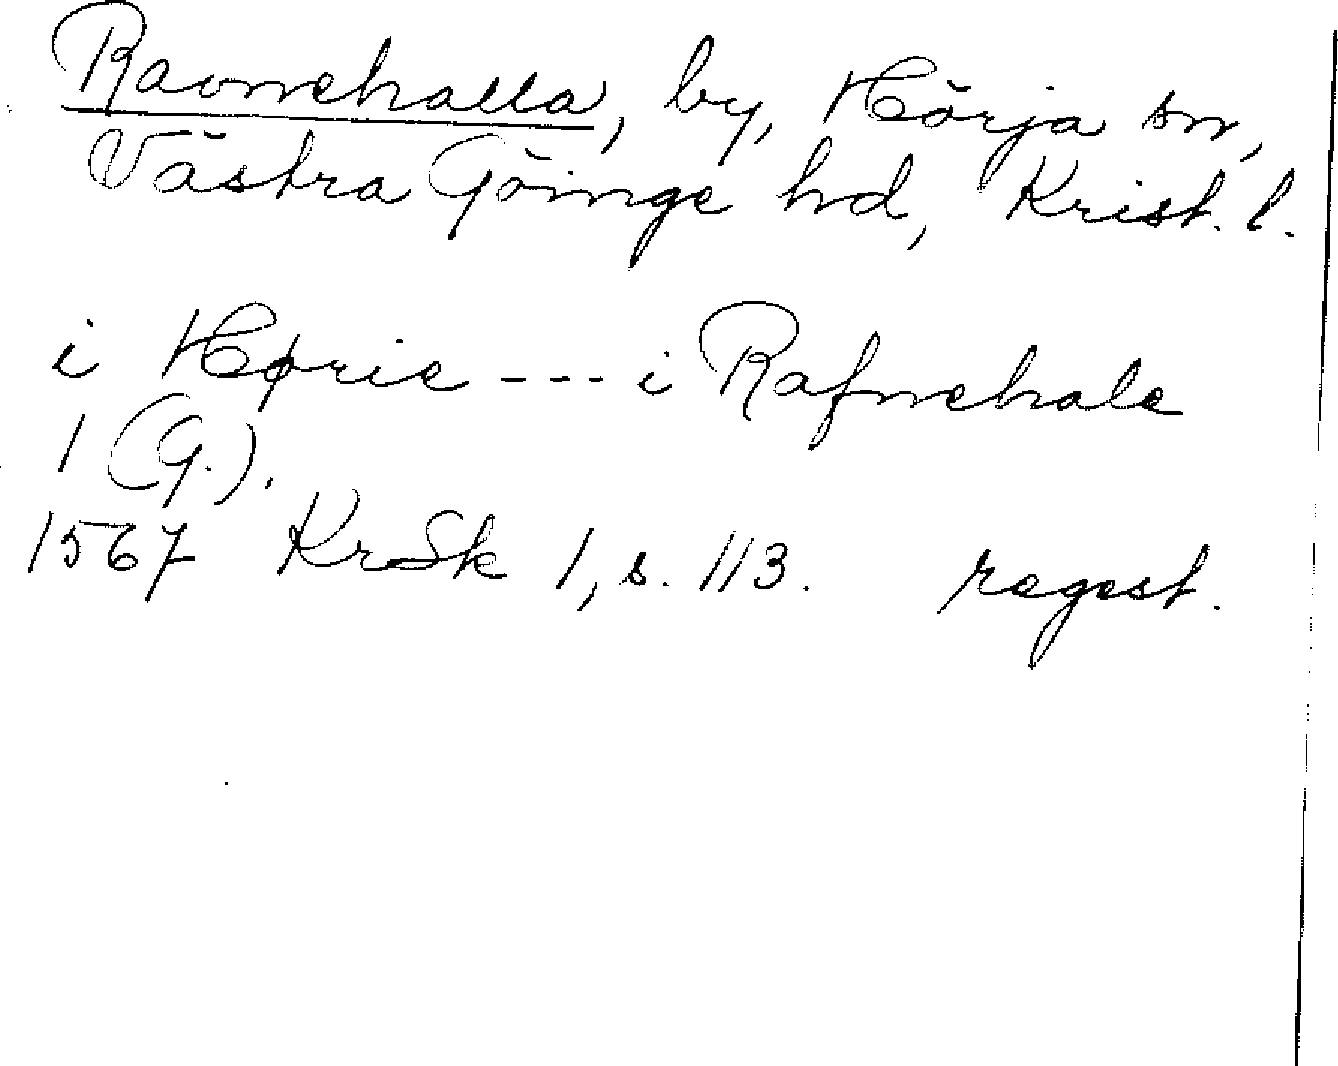 Ravnehalla, by, Hörja sn,
Västra Göinge hd, Krist. l.
i Hørie --- i Rafnehale
1 (G.).
1567 KrSk 1, s. 113. regest.